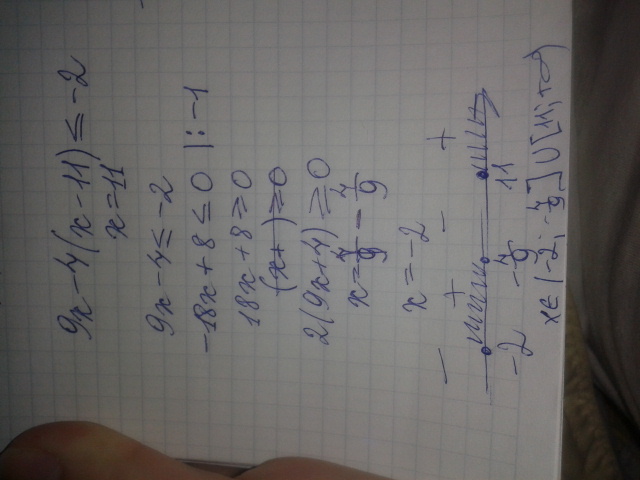 9x-4(x-11)≤-2
x=11
9x-4≤-2
-18x+8≤0 |:-1
18x+8≥0
(x+ )≥0
2(9x+4)≥0
x=-4/9 -4/9
x=-2
- + - +
-2 -4/9 11
x∈(-2; -4/9]∪[11;+∞)